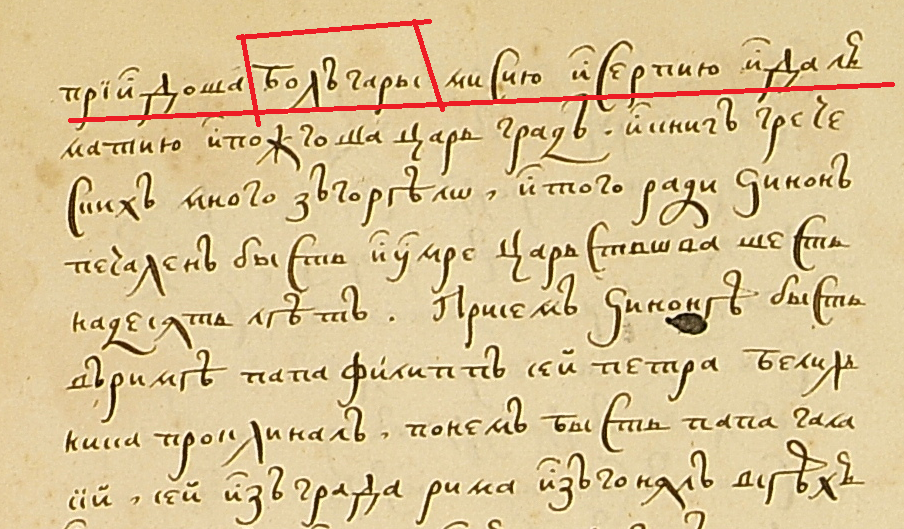 прїидоша болъгары мисию и серпию идаль
матию ипожгоша царь градъ. икнигъ грече
скихъ много зъгорѣлш, итого ради зинонъ
печаленъ бысть иумре царьствова шесть
надесять лѣтъ. Присемъ зинонѣ бысть
въримѣ папа филиппъ сей петра великъ
книга проклиналъ, понемъ бысть папа гала
сїй, сей изъграда рима изъгонялъ всѣхъ